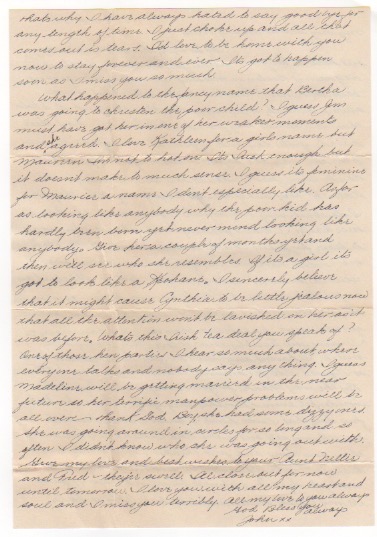 thats why I have always hated to say good bye for
any length of time. I just choke up and all that
comes out is tears. I'd love to be home with you
now to stay forever and ever. Its got to happen
soon as I miss you so much.
What happened to the fancy name that Bertha
was going to christen the poor child? I guess Jim
must have got her in one of her weaker moments
and she agreed. I love Kathleen for a girls name but
Maureen Im not to hot on. Its Irish enough but
it doesn't make to much sense. I guess its feminine
for Maurice a name I dont especially like. As for
as looking like anybody why the poor kid has
hardly been born yet never mind looking like
anybody. Give her a couple of months yet and
then will see who she resembles. If its a girl its
got to look like a. I sincerely believe
that it might cause Cynthia to be little jealous now
that all the attention won't be lavished on her as it
was before. Whats this Irish Tea deal you speak of?
One of those hen parties I hear so much about where
everyone talks and nobody says any thing. I guess
Madeline will be getting married in the near
future so her terrific manpower problems will be
all over - thank God. Boy she had some dizzy ones.
She was going around in circles for so long and so
often I didn't know who she was going out with.
Give my love and best wishes to your Aunt Nellie
and - theyre swell. Ill close out for now
until tomorrow. I love you with all my heart and
soul and I miss you terribly. All my love to you always
God Bless you
always
John xx